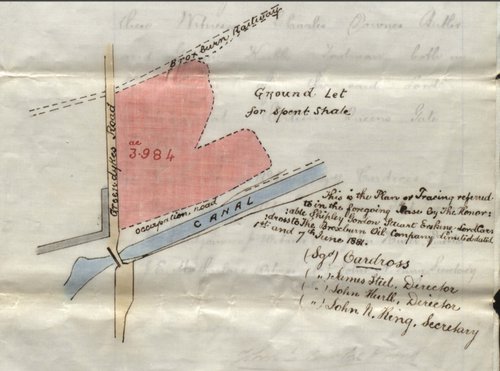 Broxburn Railway
Ground Let
for Spent Shale
Greendykes Road
ac
3.984
Occupation road
CANAL
This is the Plan or Tracing referred
to in the foregoing Lease by The Honor:
:able Shipley Gordon Stuart Erskine Lord Car:
:dross to The Broxburn Oil Company Limited dated
1st and 7th June 1881.
(Sgd) Cardross
( " ) James Steel, Director
( " ) John Hurll, Director
( " ) John N. King, Secretary